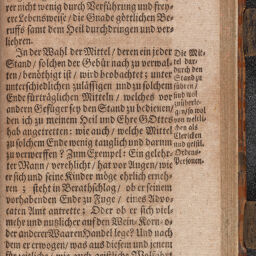 rer nicht wenig durch Verführung und frey-
re Lebensweise / die Gnade göttlichen Be-
ruffs samt dem Heil durchdringen und ver-
liehren.
In der Wahl der Mittel / deren ein jeder
Stand / solchen der Gebür nach zu verwal-
ten / benöthiget ist / wird beobachtet ; unter
unterschiedlichen zuläßigen und zu solchem
Ende fürträglichen Mitteln / welches vor
andern Gefüger sey den Stand zu bedienen /
den ich zu meinem Heil und Ehre GOttes
hab angetretten : wie auch / welche Mittel
zu solchem Ende wenig tauglich und darum
zu verwerffen ? Zum Exempel : Ein gelehr-
ter Mann / verehlicht / hat vor Augen / wie
er sich und seine Kinder möge ehrlich erneh-
ren ; stehet in Berathschlag / ob er seinem
vorhabenden Ende zu Fuge / eines Advo-
caten Amt antrette ; Oder ob er sich viel-
mehr und nutzlicher auf den Wein-Korn-o-
der anderer Waaren Handel lege ? Und nach
dem er erwogen / was aus diesem und jenem
für zeitliche / wie auch geistliche Wolfahrt
Die Mit-
tel dar-
durch den
Stand zu
führen /
sind wol
zu überle-
gen so wol
von weltli-
chen als
Clericken
und geistl.
Ordens-
Personen.